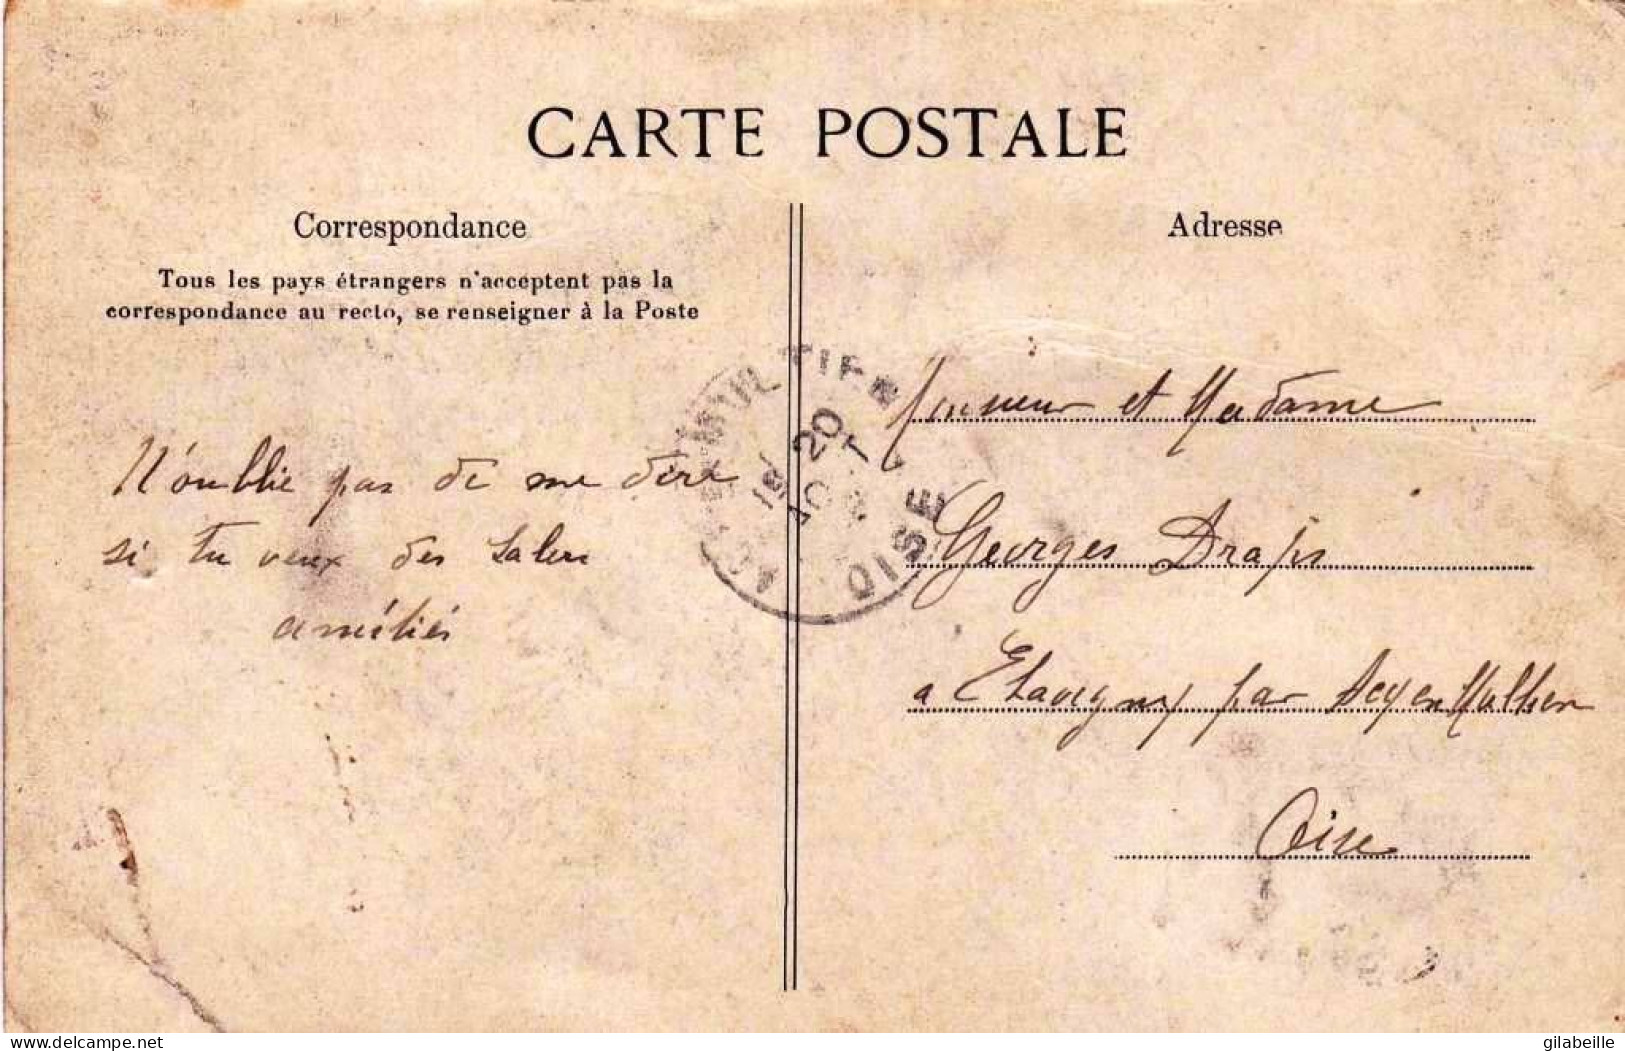 CARTE POSTALE
Correspondance
Tous les pays étrangers n'acceptent pas la
correspondance au recto, se renseigner à la Poste
N'oublie pas de me dire
si tu veux des
amitiés
Adresse
Monsieur et Madame
Georges Draps
a Etavigny par Acy en Multien
Oise
OISE
delcampe.net
gilabeille